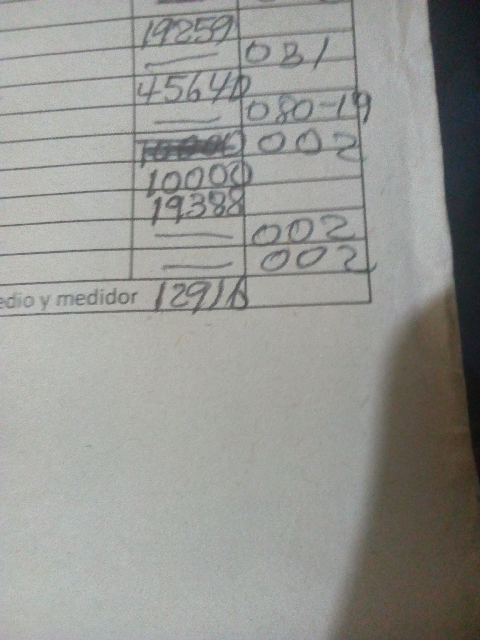 19259
— 081
45640
— 080-19
002
10000
19388
— 002
— 002
edio y medidor 12910